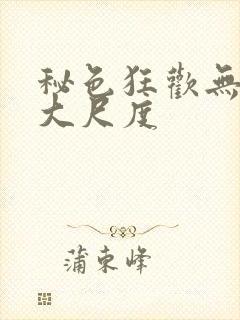 秘色狂歡無
大尺度
蒲東峰